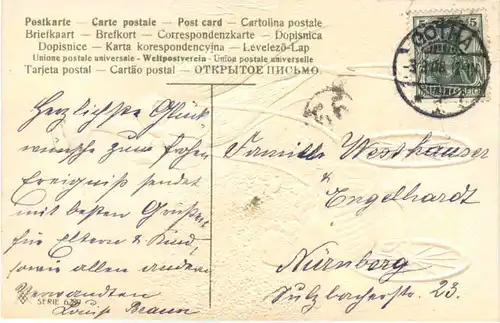 Postkarte - Carte postale - Post card - Cartolina postale
Briefkaart - Brefkort - Correspondenzkarte - Dopisnica
Dopisnice - Karta korespondencyjna - Levelező-Lap
Unione postale universale - Weltpostverein - Union postale universelle
Tarjeta postal - Cartão postal - ОТКРЫТОЕ ПИСЬМО
5 5
GOTHA
Herzlichste Glück-
wünsche zum frohen
Ereigniß sendet
mit besten Grüßen
für Eltern & Kind,
sowie allen andern
Verwandten
Louis Braun
SERIE
Familie Westhäuser
&
Engelhardt
Nürnberg
Sulzbacherstr. 23.